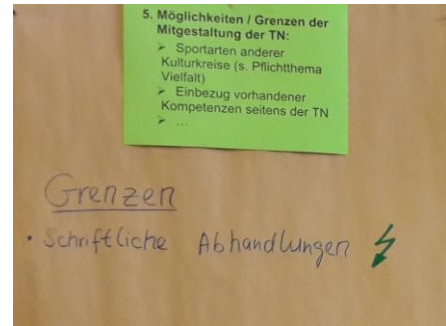 5. Möglichkeiten / Grenzen der
Mitgestaltung der TN:
➢ Sportarten anderer
Kulturkreise (s. Pflichtthema
Vielfalt)
➢ Einbezug vorhandener
Kompetenzen seitens der TN
➢ ...
Grenzen
• Schriftliche Abhandlungen